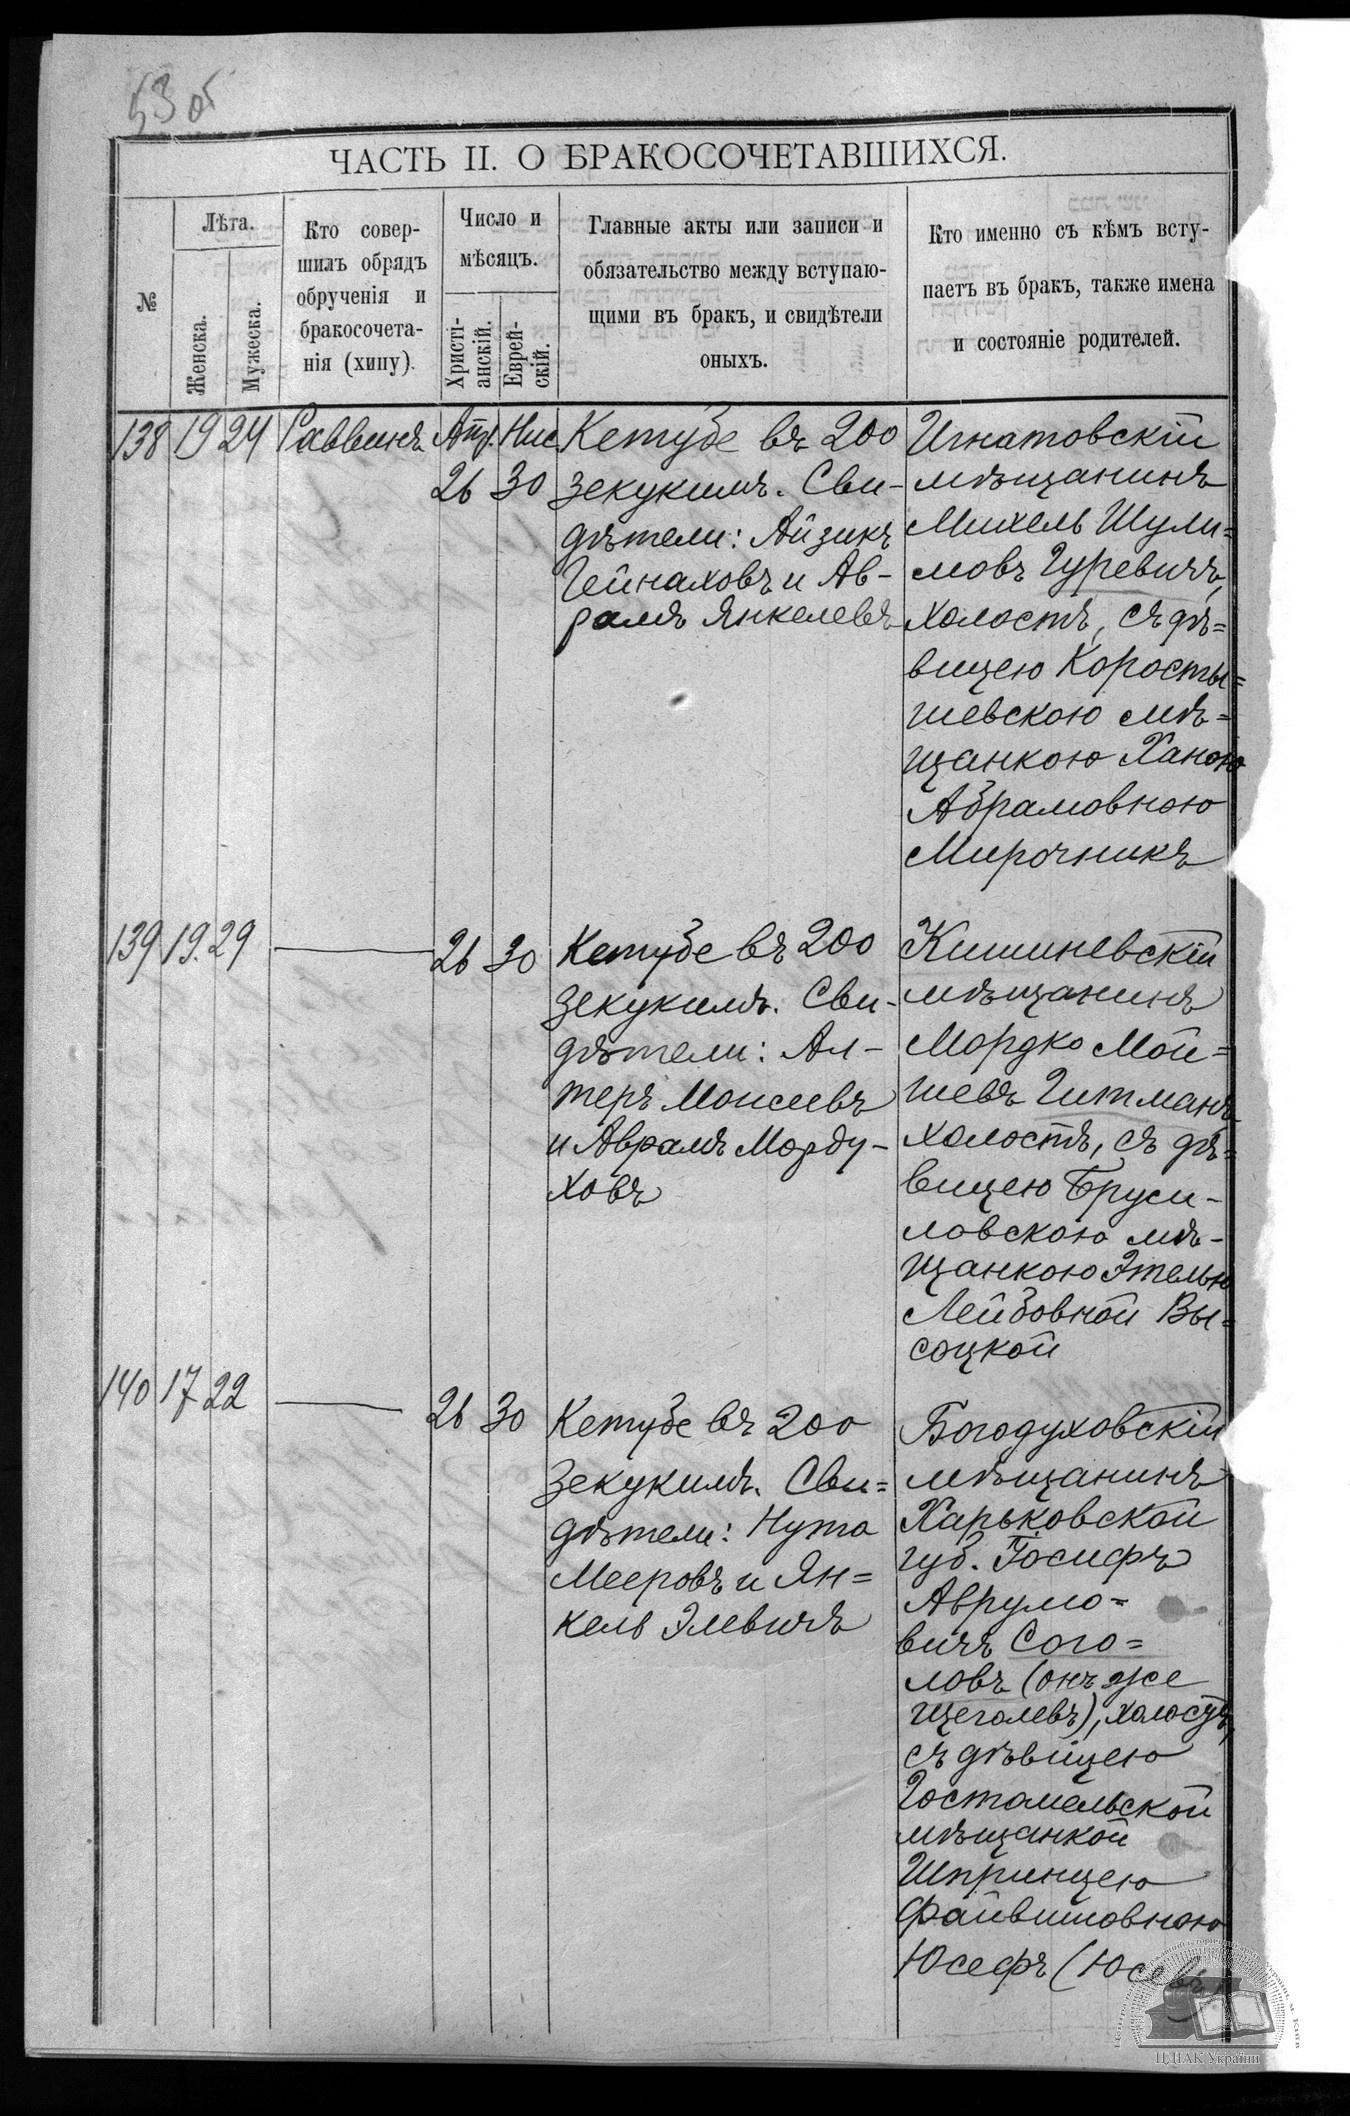 53 об
ЧАСТЬ II. О БРАКОСОЧЕТАВШИХСЯ.
№
Лѣта.
Женска.
Мужеска.
Кто совер-
шилъ обрядъ
обрученія и
бракосочета-
нія (хипу).
Число и
мѣсяцъ.
Христі-
анскій.
Еврей-
скій.
Главные акты или записи и
обязательство между вступаю-
щими въ бракъ, и свидѣтели
оныхъ.
Кто именно съ кѣмъ всту-
паетъ въ бракъ, также имена
и состояніе родителей.
138 19 24 Раввинъ Апр. Нис.
26 30
Кетубе въ 200
зекукимъ. Сви-
дѣтели: Айзикъ
Гейнаховъ и Ав-
рамъ Янкелевъ
Игнатовскій
мѣщанинъ
Михель Шули=
мовъ Гуревичъ,
холостъ, съ дѣ=
вицею Коросты=
шевскою мѣ=
щанкою Ханою
Абрамовною
Мирочникъ
139 19. 29 26 30
Кетубе въ 200
зекукимъ. Сви-
дѣтели: Ал-
теръ Моисеевъ
и Аврамъ Морду-
ховъ
Кишиневскій
мѣщанинъ
Мордко Мой=
шевъ Гитманъ
холостъ, съ дѣ=
вицею Бруси-
ловскою мѣ-
щанкою Этелью
Лейбовной Вы=
соцкой
140 17 22 26 30
Кетубе въ 200
зекукимъ. Сви=
дѣтели: Нута
Мееровъ и Ян=
кель Элевичъ
Богодуховскій
мѣщанинъ
Харьковской
губ. Іосифъ
Аврумо=
вичъ Сого=
ловъ (онъ же
Щеголевъ), холостъ,
съ дѣвицею
Гостомельской
мѣщанкой
Шпринцею
Файвишовною
Юсефъ (Юсевъ)
ЦДІАК України